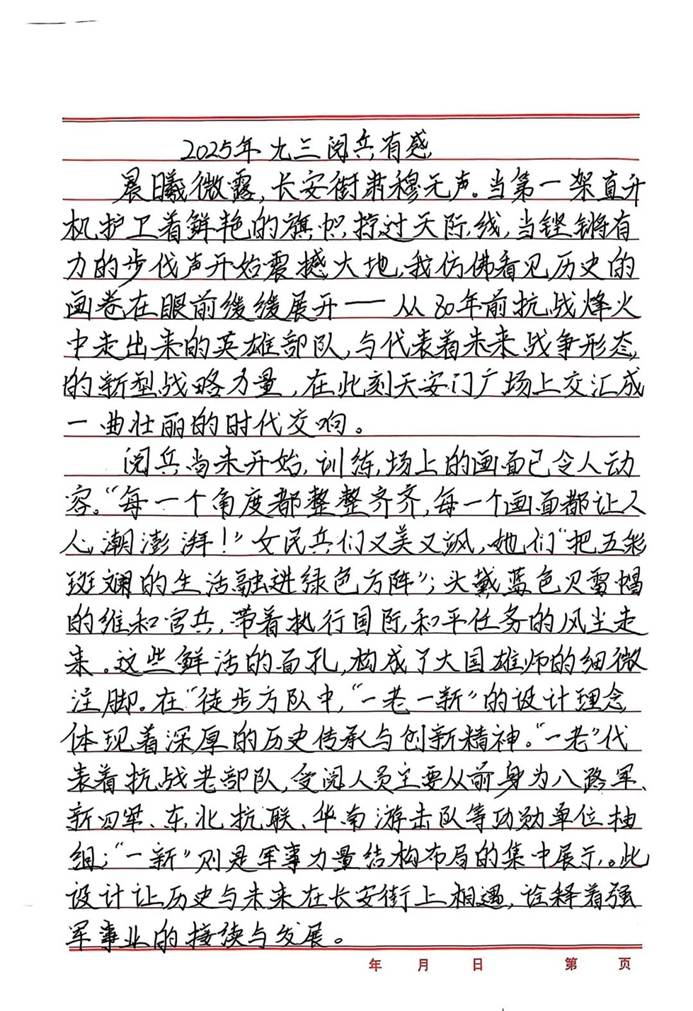 2025年九三阅兵有感
晨曦微露,长安街肃穆无声。当第一架直升
机护卫着鲜艳的旗帜,掠过天际线,当铿锵有
力的步伐声开始震撼大地,我仿佛看见历史的
画卷在眼前缓缓展开——从80年前抗战烽火
中走出来的英雄部队,与代表着未来战争形态
的新型战略力量,在此刻天安门广场上交汇成
一曲壮丽的时代交响。
阅兵尚未开始,训练场上的画面已令人动
容。“每一个角度都整整齐齐,每一个画面都让人
心潮澎湃!”女民兵们又美又飒,她们“把五彩
斑斓的生活融进绿色方阵”;头戴蓝色贝雷帽
的维和官兵,带着执行国际和平任务的风尘走
来。这些鲜活的面孔,构成了大国雄师的细微
注脚。在“徒步方队中,“一老一新”的设计理念
体现着深厚的历史传承与创新精神。“一老”代
表着抗战老部队,受阅人员主要从前身为八路军、
新四军、东北抗联、华南游击队等功勋单位抽
组;“一新”则是军事力量结构布局的集中展示。此
设计让历史与未来在长安街上相遇,诠释着强
军事业的接续与发展。
年 月 日 第 页